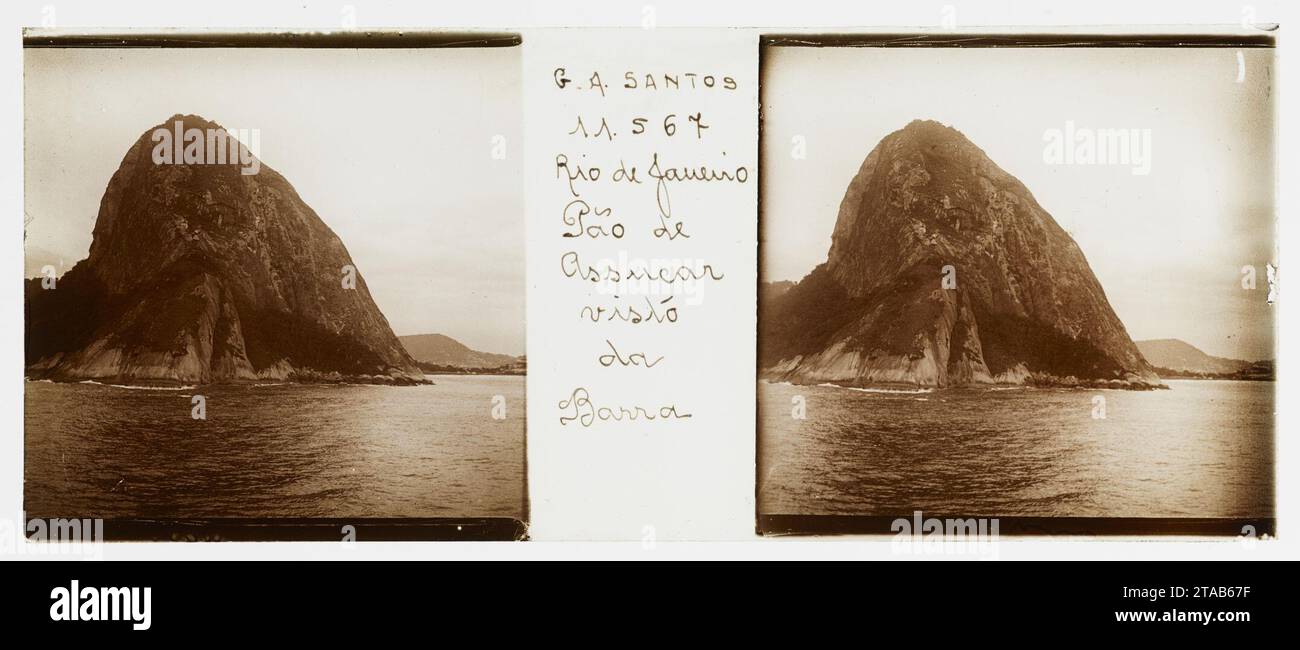 G. A. SANTOS
11.567
Rio de Janeiro
Pão de
Assucar
visto
da
Barra
alamy
Image ID: 2TAB67F
www.alamy.com